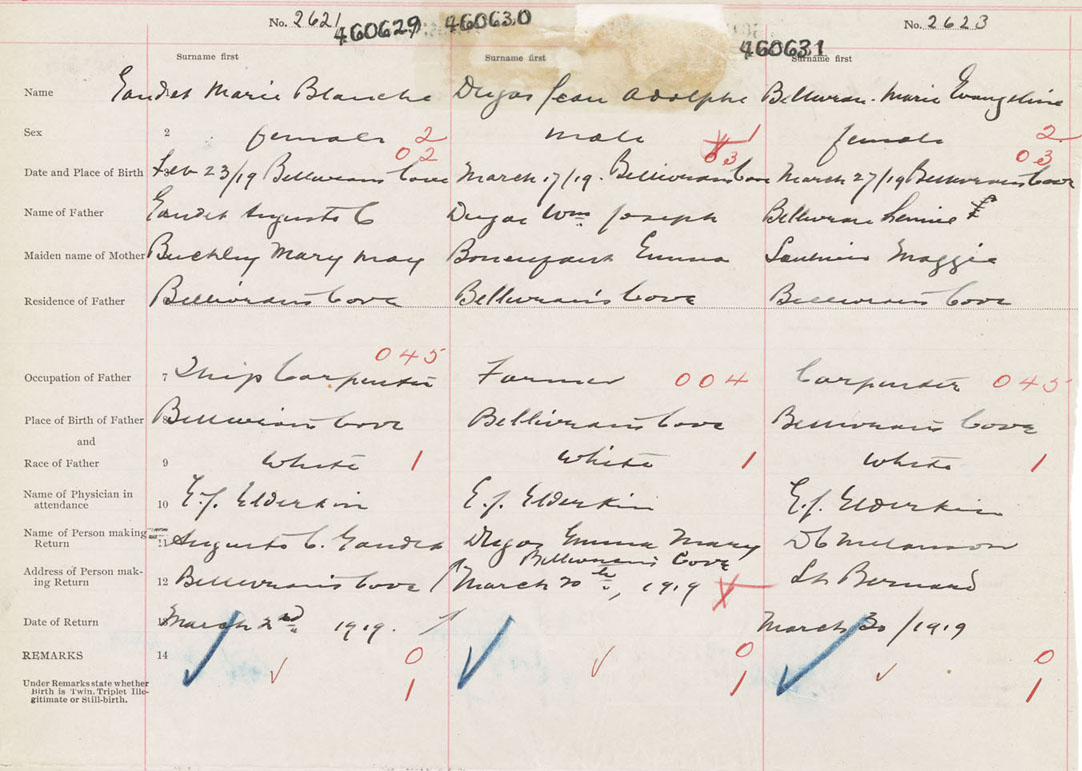 No. 2621 460629 460630 460631 No. 2623
Surname first Surname first Surname first
Name Gaudet Marie Blanche Dugas Jean Adolphe Belliveau Marie Evangeline
Sex 2 female 2 male 1 female 2
02 03 03
Date and Place of Birth Feb 23/19 Belliveau's Cove March 17/19. Belliveau's Cove March 27/19 Belliveau's Cove
Name of Father Gaudet Auguste C Dugas Wm Joseph Belliveau
Maiden name of Mother Buckley Mary May Bonenfant Emma Maggie
Residence of Father Belliveau's Cove Belliveau's Cove Belliveau's Cove
045
Occupation of Father 7 Ship Carpenter Farmer 004 Carpenter 045
Place of Birth of Father 8 Belliveau's Cove Belliveau's Cove Belliveau's Cove
and
Race of Father 9 White 1 White 1 White 1
Name of Physician in
attendance 10 E.J. Elderkin E.J. Elderkin E.J. Elderkin
Name of Person making
Return 11 Auguste C. Gaudet Dugas Emma Mary D C Melanson
Belliveau's Cove
Address of Person mak-
ing Return 12 Belliveau's Cove March 20th, 1919 St Bernard
Date of Return March 2nd 1919. March 30/1919
REMARKS 14 0 0 0
Under Remarks state whether
Birth is Twin, Triplet Ille-
gitimate or Still-birth. 1 1 1